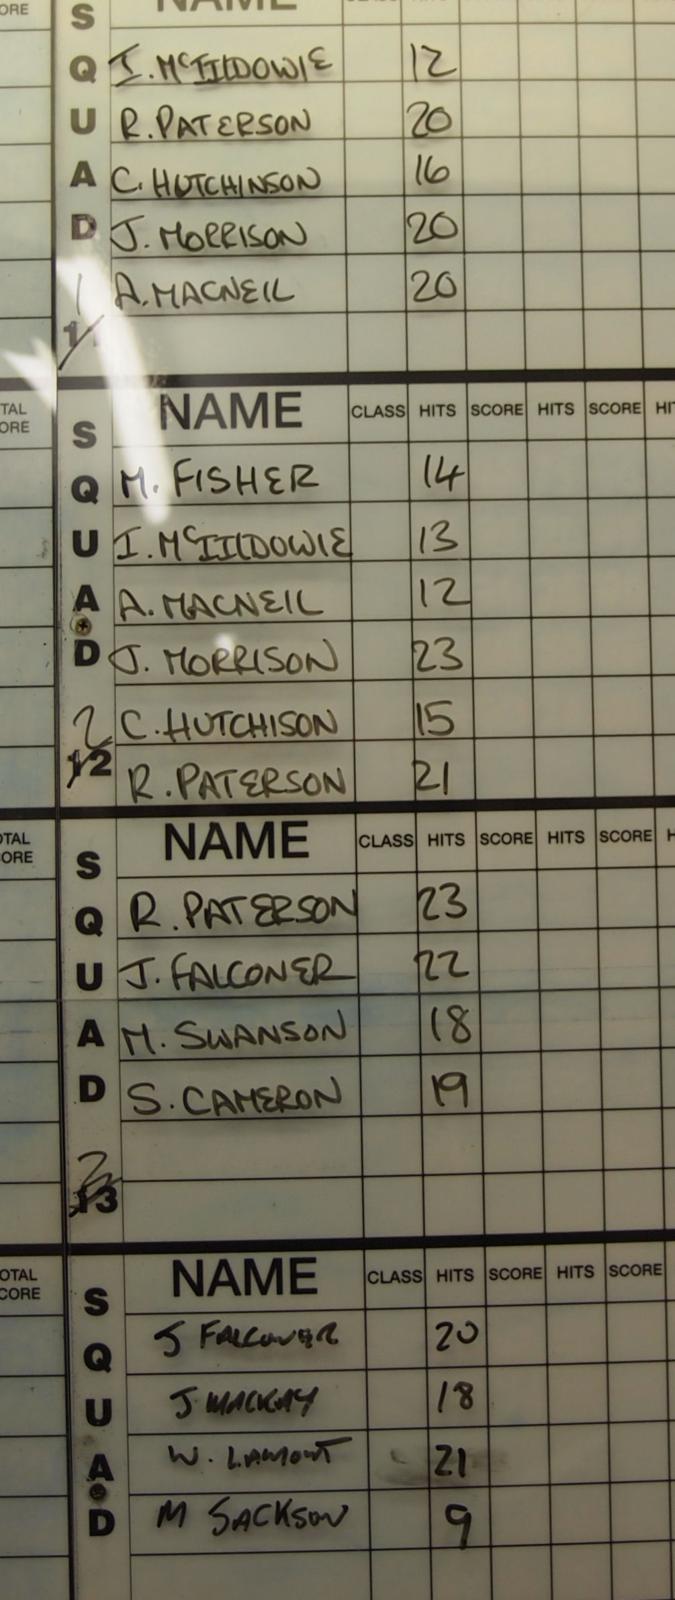 ORE NAME HITS
SQUAD 1
I. MCILDOWIE 12
R. PATERSON 20
C. HUTCHINSON 16
J. MORRISON 20
A. MACNEIL 20
TAL ORE NAME CLASS HITS SCORE HITS SCORE HI
SQUAD 2 12
M. FISHER 14
I. MCILDOWIE 13
A. MACNEIL 12
J. MORRISON 23
C. HUTCHISON 15
R. PATERSON 21
OTAL CORE NAME CLASS HITS SCORE HITS SCORE H
SQUAD 13
R. PATERSON 23
J. FALCONER 22
M. SWANSON 18
S. CAMERON 19
OTAL CORE NAME CLASS HITS SCORE HITS SCORE
SQUAD
J FALCONER 20
J MACKAY 18
W. LAMONT 21
M JACKSON 9